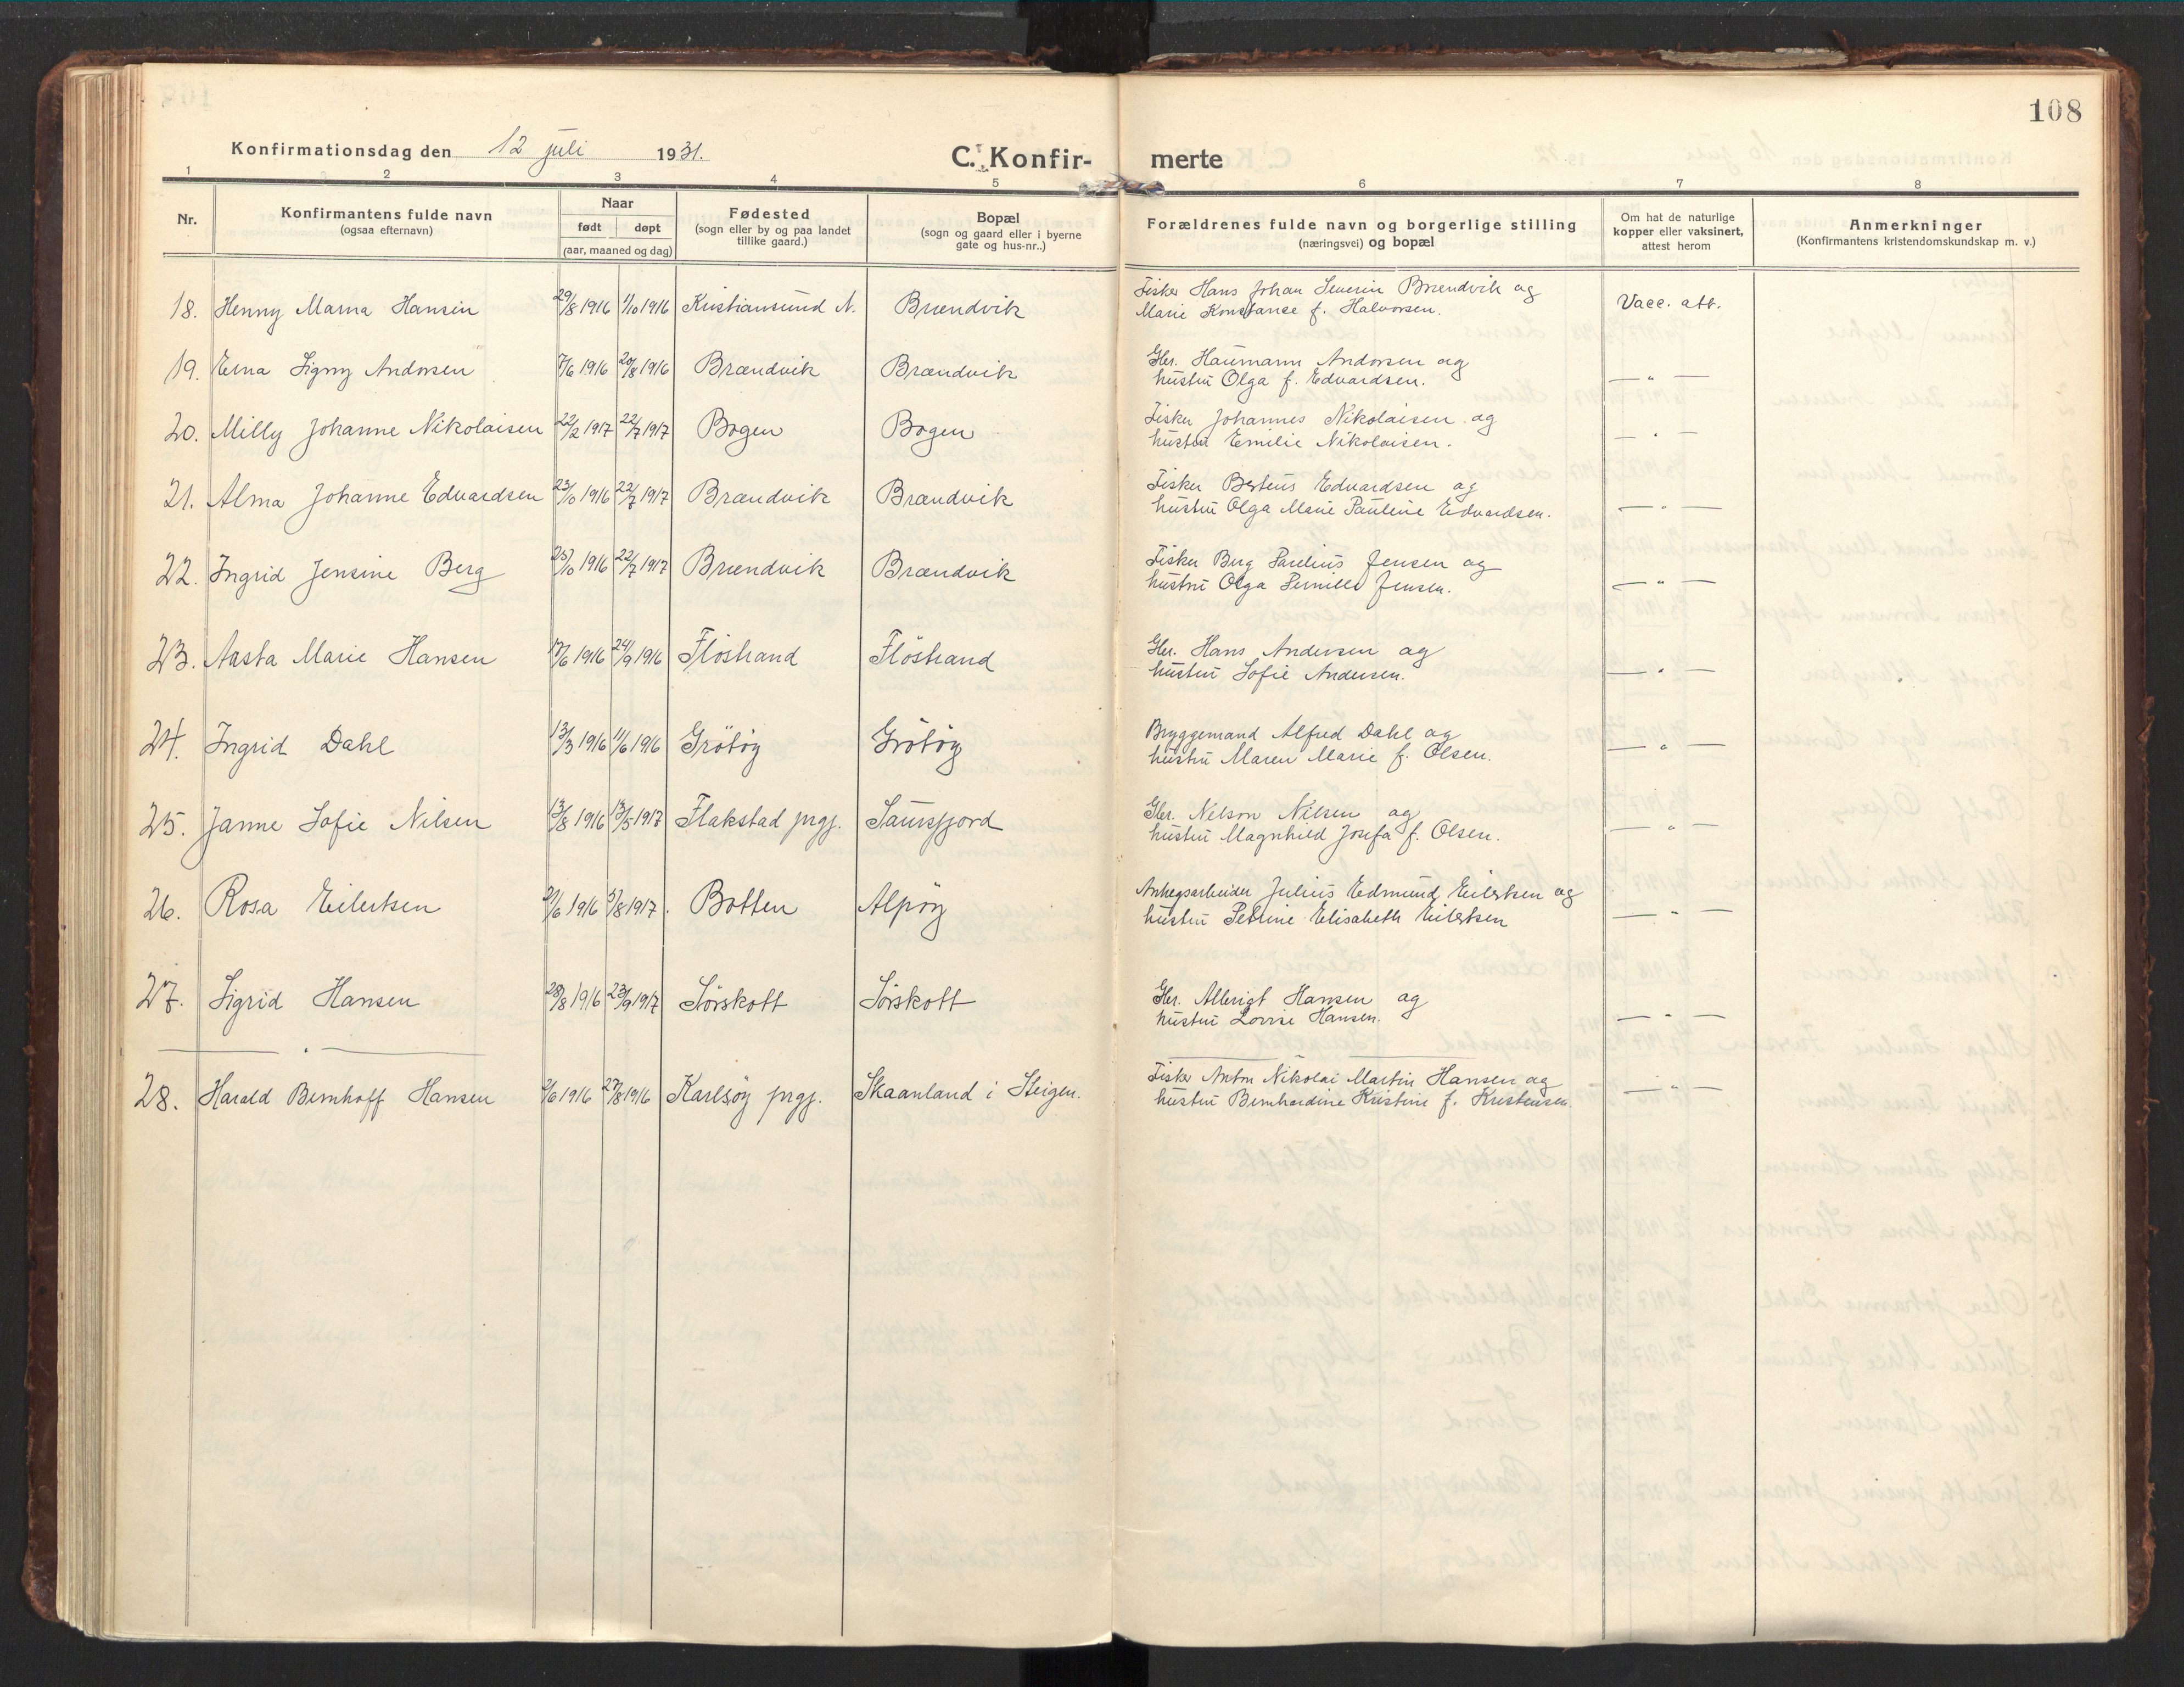 108
Konfirmationsdag den 12 juli 1931.
C. Konfir- merte
1 2 3 4 5 6 7 8
Nr.
Konfirmantens fulde navn
(ogsaa efternavn)
Naar
født døpt
(aar, maaned og dag)
Fødested
(sogn eller by og paa landet
tillike gaard.)
Bopæl
(sogn og gaard eller i byerne
gate og hus-nr.)
Forældrenes fulde navn og borgerlige stilling
(næringsvei) og bopæl
Om hat de naturlige
kopper eller vaksinert,
attest herom
Anmerkninger
(Konfirmantens kristendomskundskap m. v.)
18. Henny Marna Hansen 29/8 1916 1/10 1916 Kristiansund N. Brændvik Fisker Hans Johan Severin Brændvik og
Marie Konstanse f. Halvorsen. Vacc. att.
19. Erna Signy Andorsen 7/6 1916 20/8 1916 Brændvik Brændvik Gbr. Haumann Andorsen og
hustru Olga f. Edvardsen. — " —
20. Milly Johanne Nikolaisen 22/2 1917 22/7 1917 Bogen Bogen Fisker Johannes Nikolaisen og
hustru Emilie Nikolaisen. — " —
21. Alma Johanne Edvardsen 23/10 1916 22/7 1917 Brændvik Brændvik Fisker Berteus Edvardsen og
hustru Olga Marie Pauline Edvardsen. — " —
22. Ingrid Jensine Berg 25/10 1916 22/7 1917 Brændvik Brændvik Fisker Berg Parelius Jensen og
hustru Olga Pernille Jensen. — " —
23. Aasta Marie Hansen 17/6 1916 24/9 1916 Flöstrand Flöstrand Gbr. Hans Andersen og
hustru Sofie Andersen. — " —
24. Ingrid Dahl 13/3 1916 11/6 1916 Grötöy Grötöy Bryggemand Alfred Dahl og
hustru Maren Marie f. Olsen. — " —
25. Janne Sofie Nilsen 13/8 1916 13/5 1917 Flakstad prgj. Saursfjord Gbr. Nelson Nilsen og
hustru Magnhild Josefa f. Olsen. — " —
26. Rosa Eilertsen 21/6 1916 5/8 1917. Botten Alpöy Anlegsarbeider Julius Edmund Eilertsen og
hustru Petrine Elisabeth Eilertsen — " —
27. Sigrid Hansen 28/8 1916 23/9 1917 Sörskott Sörskott Gbr. Albrigt Hansen og
hustru Lovise Hansen. — " —
28. Harald Bernhoff Hansen 2/6 1916 27/8 1916 Karlsöy prgj. Skaanland i Steigen. Fisker Anton Nikolai Martin Hansen og
hustru Bernhardine Kristine f. Kristensen — " —